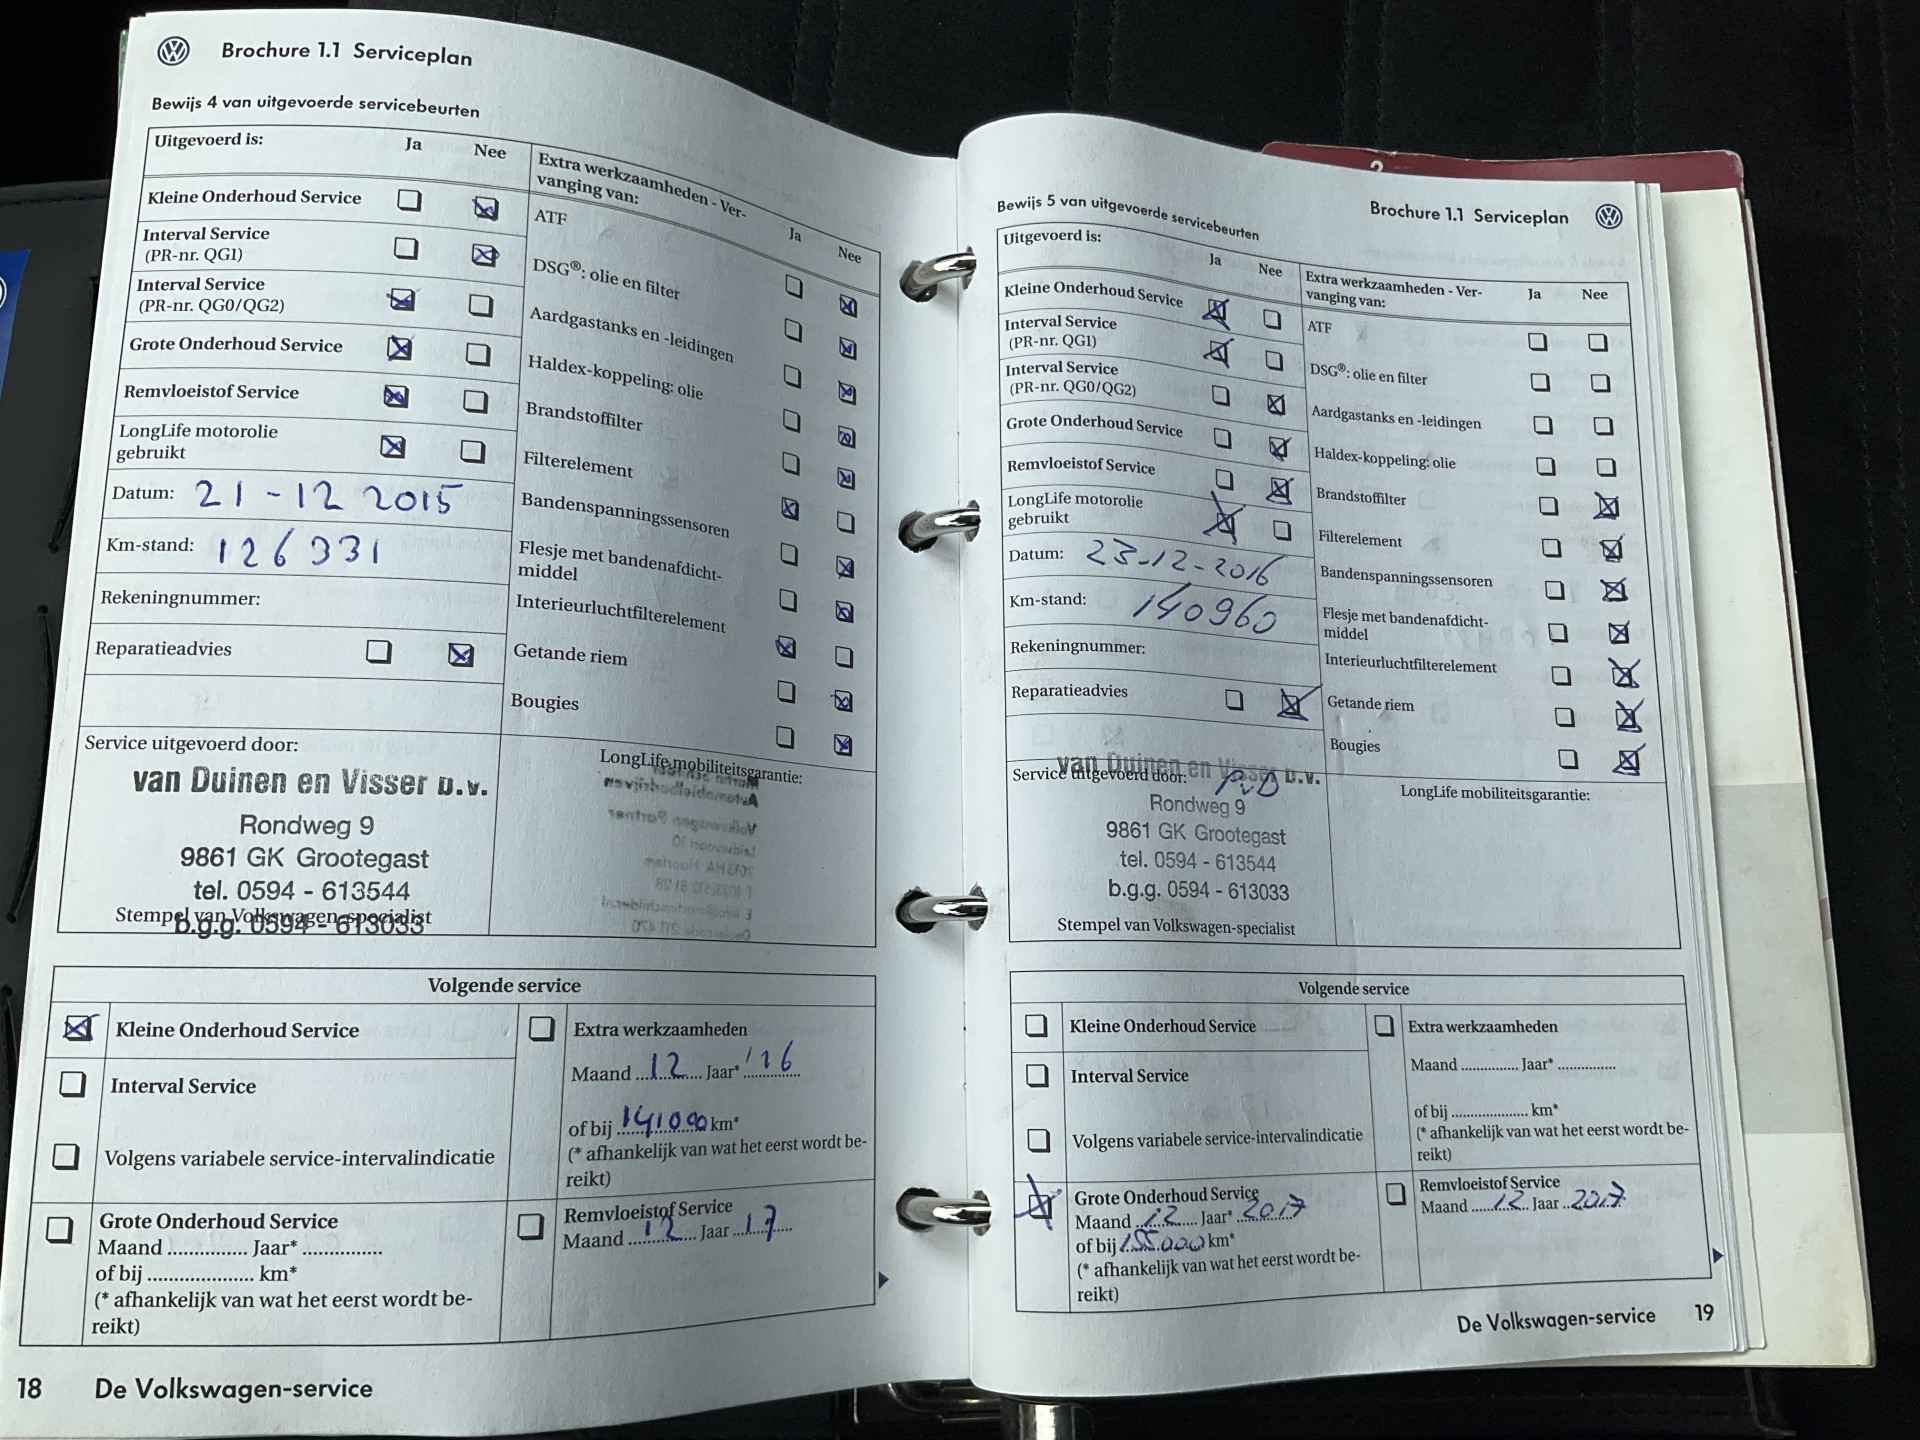 Brochure 1.1 Serviceplan
Bewijs 4 van uitgevoerde servicebeurten
Uitgevoerd is:
Ja
Nee
Kleine Onderhoud Service
Interval Service
(PR-nr. QG1)
Interval Service
(PR-nr. QG0/QG2)
Grote Onderhoud Service
Remvloeistof Service
LongLife motorolie
gebruikt
Datum: 21 - 12 2015
Km-stand: 126 331
Rekeningnummer:
Reparatieadvies
Extra werkzaamheden - Ver-
vanging van:
Ja
Nee
ATF
DSG®: olie en filter
Aardgastanks en -leidingen
Haldex-koppeling: olie
Brandstoffilter
Filterelement
Bandenspanningssensoren
Flesje met bandenafdicht-
middel
Interieurluchtfilterelement
Getande riem
Bougies
Service uitgevoerd door:
van Duinen en Visser b.v.
Rondweg 9
9861 GK Grootegast
tel. 0594 - 613544
Stempel van Volkswagen-specialist
b.g.g. 0594 - 613033
LongLife mobiliteitsgarantie:
Volgende service
Kleine Onderhoud Service
Interval Service
Volgens variabele service-intervalindicatie
Grote Onderhoud Service
Maand ............... Jaar* ...............
of bij .................... km*
(* afhankelijk van wat het eerst wordt be-
reikt)
Extra werkzaamheden
Maand 12 Jaar* '16
of bij 141000 km*
(* afhankelijk van wat het eerst wordt be-
reikt)
Remvloeistof Service
Maand 12 Jaar 17
18 De Volkswagen-service
Brochure 1.1 Serviceplan
Bewijs 5 van uitgevoerde servicebeurten
Uitgevoerd is:
Ja
Nee
Kleine Onderhoud Service
Interval Service
(PR-nr. QG1)
Interval Service
(PR-nr. QG0/QG2)
Grote Onderhoud Service
Remvloeistof Service
LongLife motorolie
gebruikt
Datum: 23-12-2016
Km-stand: 140960
Rekeningnummer:
Reparatieadvies
Extra werkzaamheden - Ver-
vanging van:
Ja
Nee
ATF
DSG®: olie en filter
Aardgastanks en -leidingen
Haldex-koppeling: olie
Brandstoffilter
Filterelement
Bandenspanningssensoren
Flesje met bandenafdicht-
middel
Interieurluchtfilterelement
Getande riem
Bougies
van Duinen en Visser b.v.
Service uitgevoerd door:
Rondweg 9
9861 GK Grootegast
tel. 0594 - 613544
b.g.g. 0594 - 613033
Stempel van Volkswagen-specialist
LongLife mobiliteitsgarantie:
Volgende service
Kleine Onderhoud Service
Interval Service
Volgens variabele service-intervalindicatie
Grote Onderhoud Service
Maand 12 Jaar* 2017
of bij 155.000 km*
(* afhankelijk van wat het eerst wordt be-
reikt)
Extra werkzaamheden
Maand ............... Jaar* ...............
of bij .................... km*
(* afhankelijk van wat het eerst wordt be-
reikt)
Remvloeistof Service
Maand 12 Jaar 2017
De Volkswagen-service 19